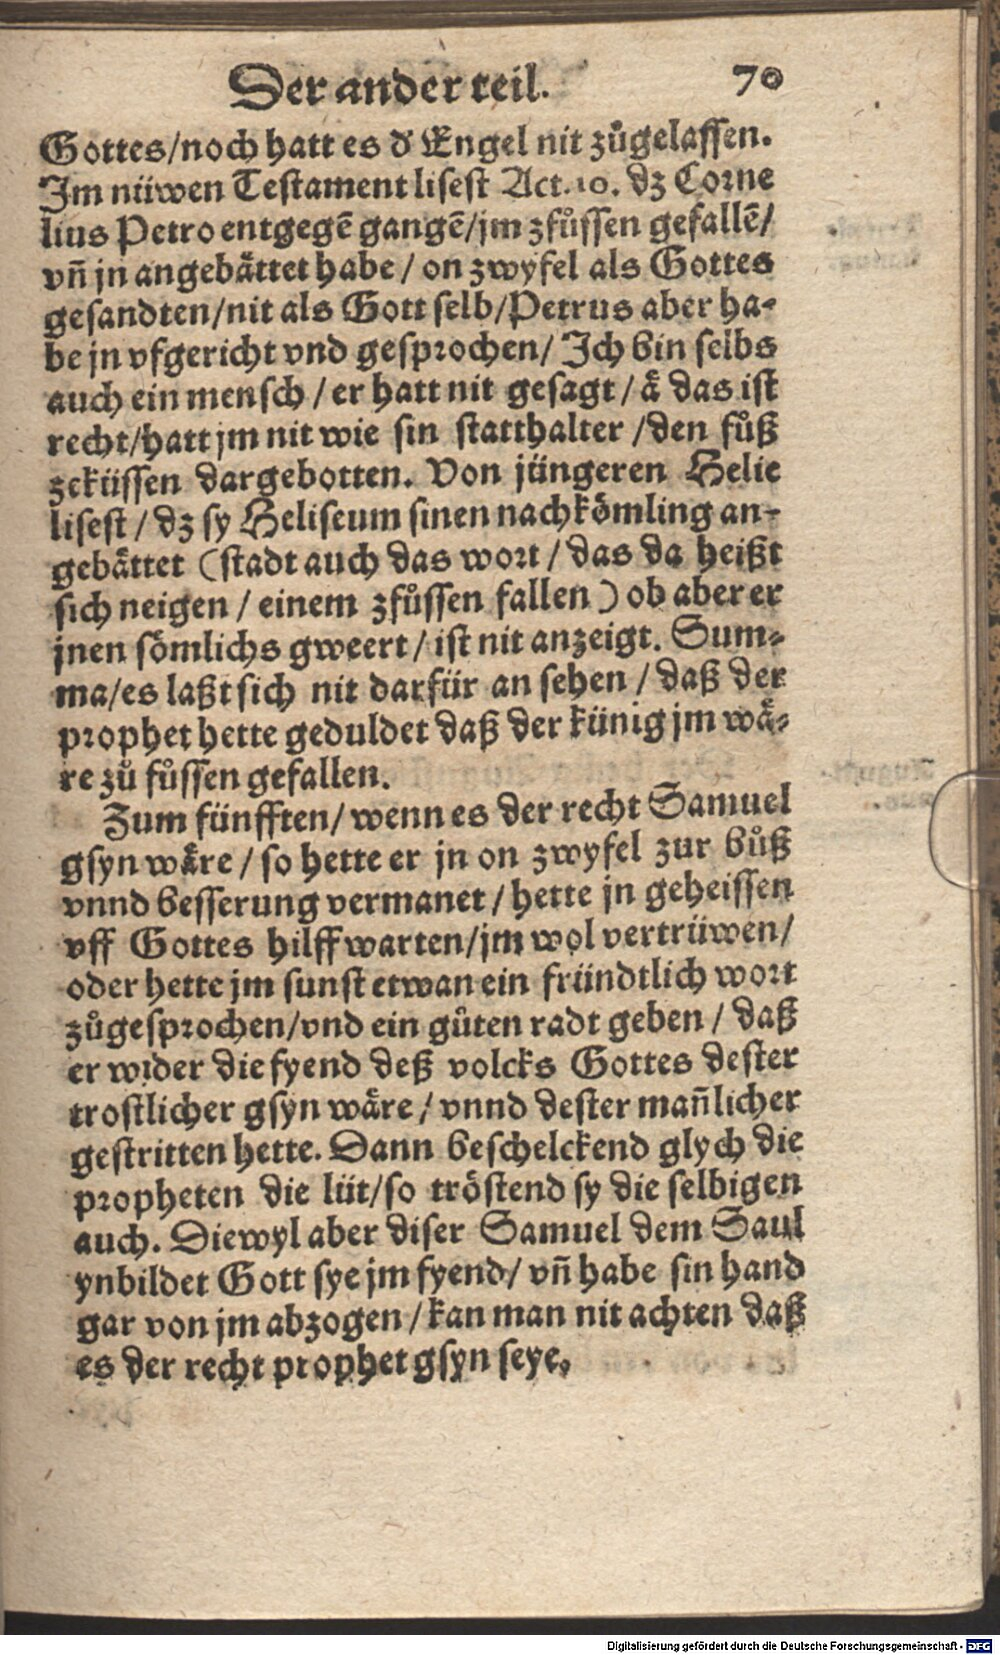 Der ander teil. 70
Gottes/noch hatt es d' Engel nit zůgelassen.
Jm nüwen Testament lisest Act. 10. dz Corne
lius Petro entgegē gangē/jm zfůssen gefallē/
vn̄ jn angebättet habe / on zwyfel als Gottes
gesandten/nit als Gott selb/Petrus aber ha-
be jn vfgericht vnd gesprochen/ Jch bin selbs
auch ein mensch / er hatt nit gesagt / ä das ist
recht/hatt jm nit wie sin statthalter /den fůß
zeküssen dargebotten. Von jüngeren Helie
lisest / dz sy Heliseum sinen nachkömling an-
gebättet (stadt auch das wort / das da heißt
sich neigen / einem zfůssen fallen ) ob aber er
jnen sömlichs gweert / ist nit anzeigt. Sum-
ma/es laßt sich nit darfür an sehen / daß der
prophet hette geduldet daß der künig jm wä-
re zů fůssen gefallen.
Zum fünfften/ wenn es der recht Samuel
gsyn wäre / so hette er jn on zwyfel zur bůß
vnnd besserung vermanet / hette jn geheissen
vff Gottes hilff warten/jm wol vertrüwen/
oder hette jm sunst etwan ein fründtlich wort
zůgesprochen/vnd ein gůten radt geben / daß
er wider die fyend deß volcks Gottes dester
trostlicher gsyn wäre / vnnd dester man̄licher
gestritten hette. Dann beschelckend glych die
propheten die lüt/so tröstend sy die selbigen
auch. Diewyl aber diser Samuel dem Saul
ynbildet Gott sye jm fyend/ vn̄ habe sin hand
gar von jm abzogen / kan man nit achten daß
es der recht prophet gsyn seye.
Digitalisierung gefördert durch die Deutsche Forschungsgemeinschaft - DFG